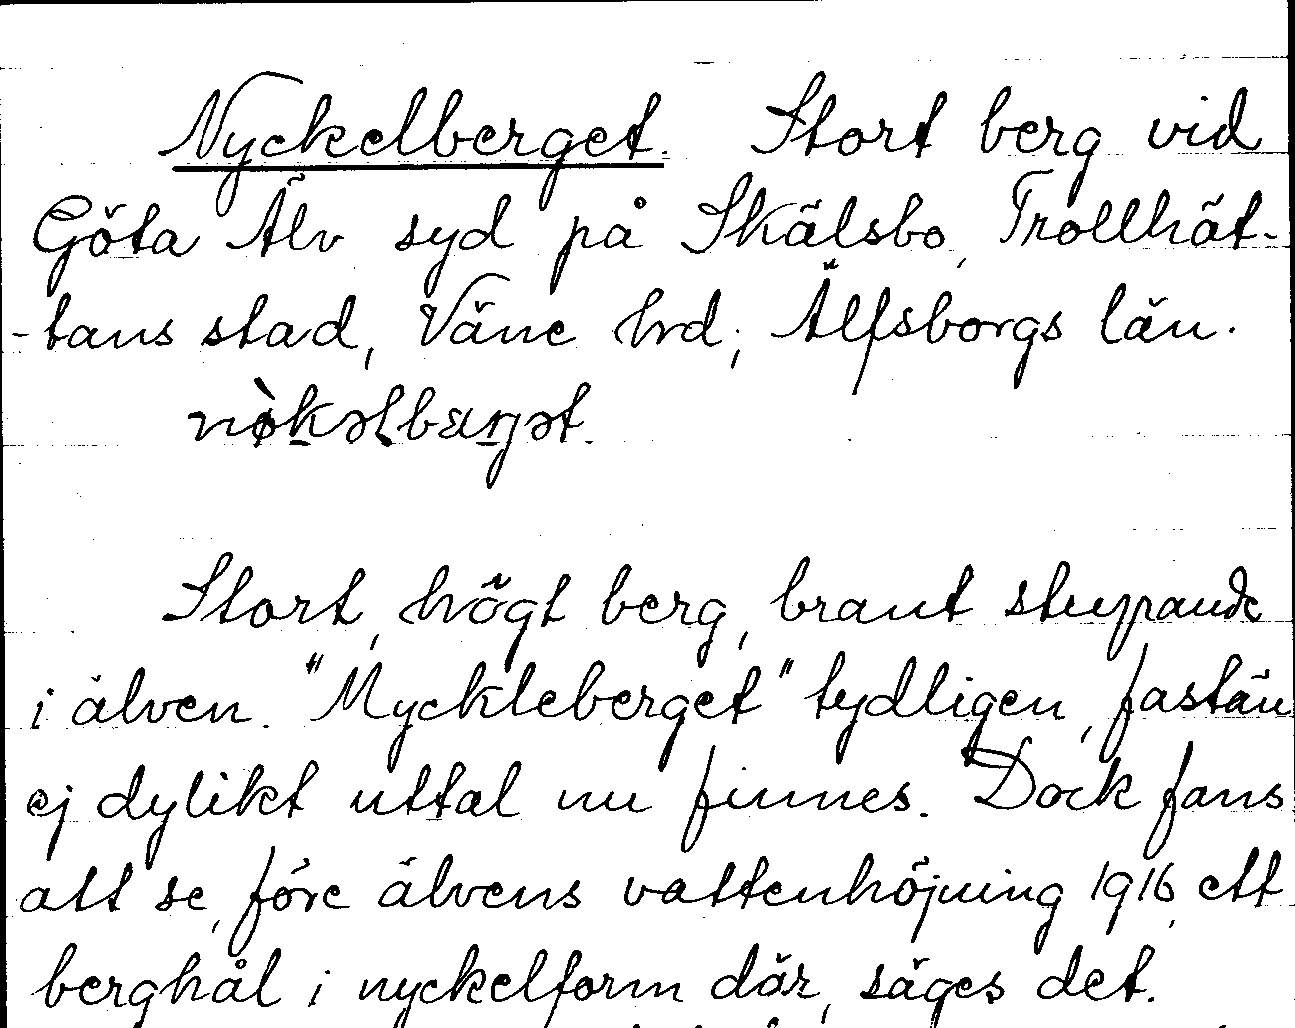 Nyckelberget. Stort berg vid
Göta Älv syd på Skälsbo, Trollhät-
-tans stad, Väne hrd; Älfsborgs län.
Stort, högt berg, brant stupande
i älven. "Myckleberget" tydligen, fastän
ej dylikt uttal nu finnes. Dock fans
att se, före älvens vattenhöjning 1916, ett
berghål i nyckelform där, säges det.